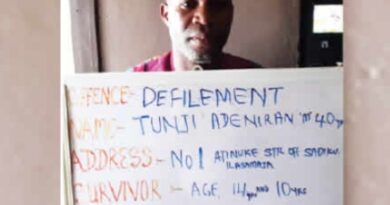 OFFENCE:- DEFILEMENT
NAME:- TUNJI ADENIRAN 'M' 40
ADDRESS - NO 1 ATINUKE STR OFF SADIKU
ILASAMAJA
SURVIVOR - AGE, 14yrs AND 10yrs